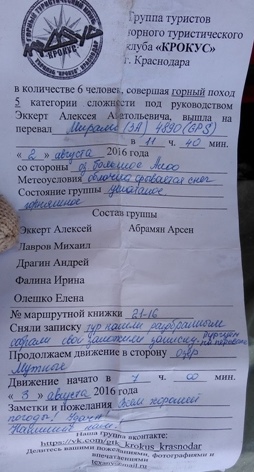 КРОКУС
Группа туристов
горного туристического
клуба «КРОКУС»
г. Краснодара
в количестве 6 человек, совершая горный поход
5 категории сложности под руководством
Эккерт Алексея Анатольевича, вышла на
перевал Мирали (3А) 4890 (GPS)
в 11 ч. 40 мин.
« 2 » августа 2016 года
со стороны
Метеоусловия облачно снег
Состояние группы
Состав группы
Эккерт Алексей Абрамян Арсен
Лавров Михаил
Драгин Андрей
Фалина Ирина
Олешко Елена
№ маршрутной книжки 21-16
Сняли записку тур нашли разобранным
Продолжаем движение в сторону озёр
Мутное
Движение начато в 7 ч. 00 мин.
« 3 » августа 2016 года
Заметки и пожелания Всем хорошей
погоды!
Наша группа вконтакте:
https://vk.com/gtk_krokus_krasnodar
Делитесь вашими пожеланиями, фотографиями и
впечатлениями